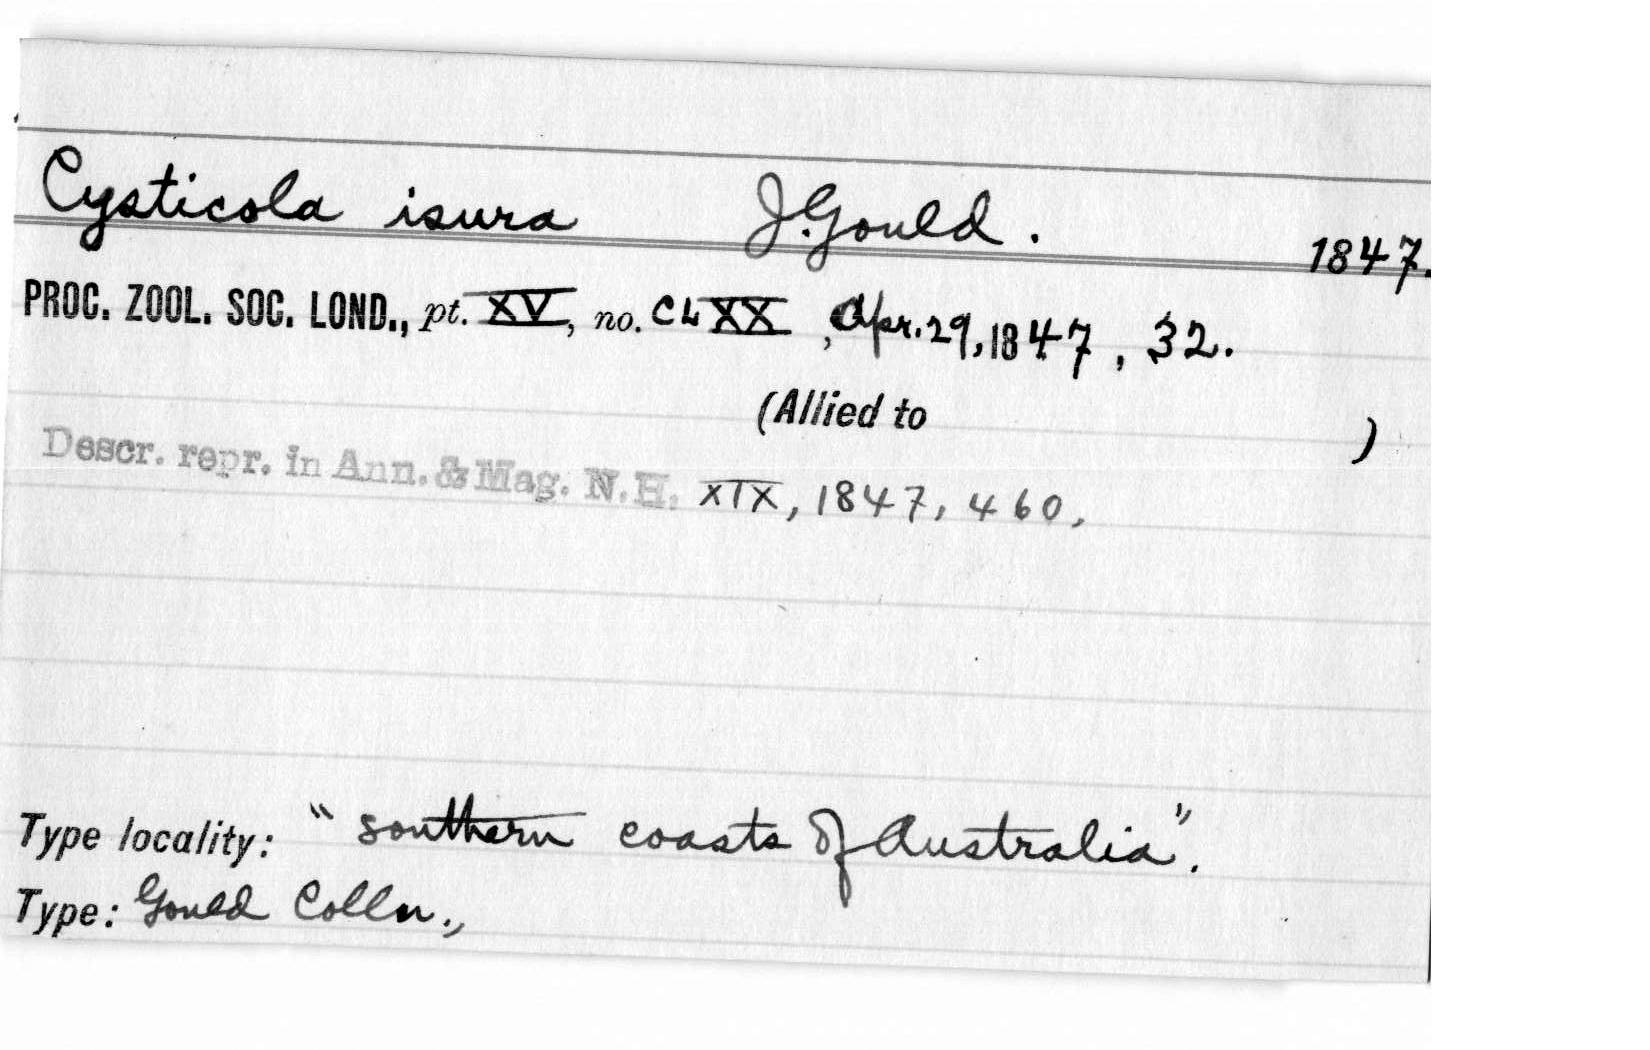 Cysticola isura J. Gould. 1847.
PROC. ZOOL. SOC. LOND., pt. XV, no. CLXX, Apr. 29, 1847, 32.
(Allied to )
Descr. repr. in Ann. & Mag. N.H. XIX, 1847, 460,
Type locality: "southern coasts of Australia".
Type: Gould Colln.,